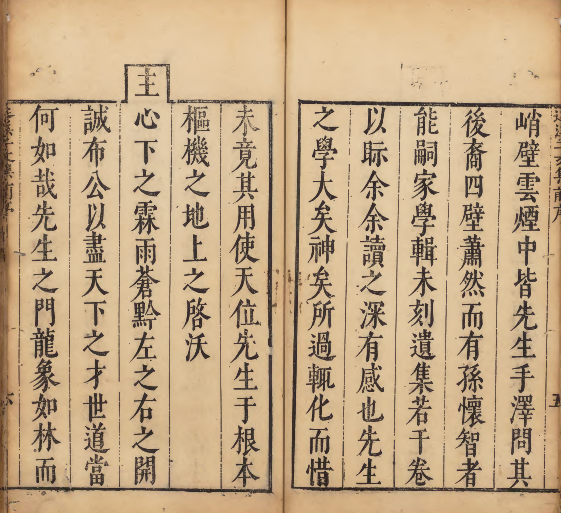 峭壁雲煙中皆先生手澤問其
後裔四壁蕭然而有孫懷智者
能嗣家學輯未刻遺集若干卷
以眎余余讀之深有感也先生
之學大矣神矣所過輒化而惜
未竟其用使天位先生于根本
樞機之地上之啓沃
主心下之霖雨蒼黔左之右之開
誠布公以盡天下之才世道當
何如哉先生之門龍象如林而